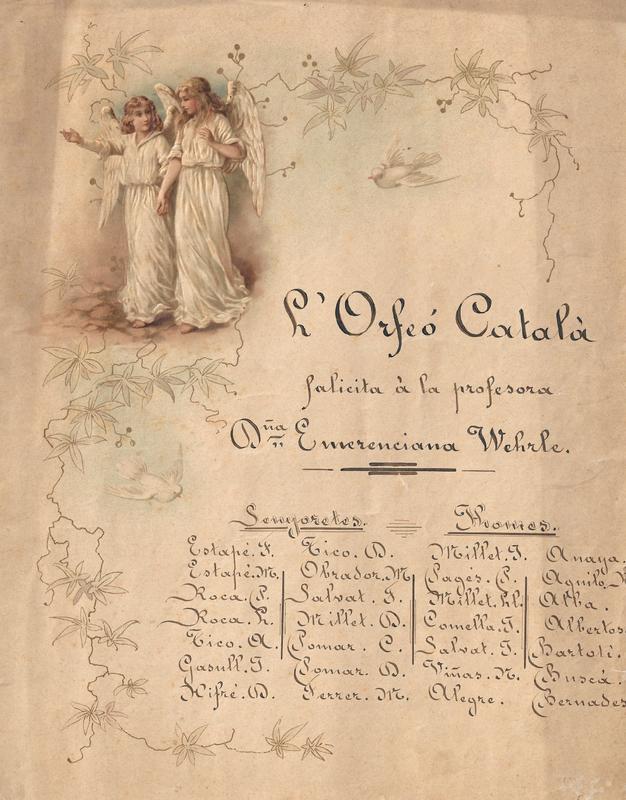 L'Orfeó Català
falicita à la profesora
Dña Emerenciana Wehrle.
Senyoretes. Homes.
Estapé. F. Tico. D. Millet. J. Anaya.
Estapé. M. Obrador. M Pagés. P. Aguiló.
Roca. P. Salvat. J. Millet. Ll. Alba.
Roca. R. Millet. D. Comella. J. Albertos
Tico. A. Pomar. C. Salvat. J. Bartolí.
Gasull. J. Pomar. D. Viñas. N. Buscá.
Rifré. D. Ferrer. M. Alegre. Bernades